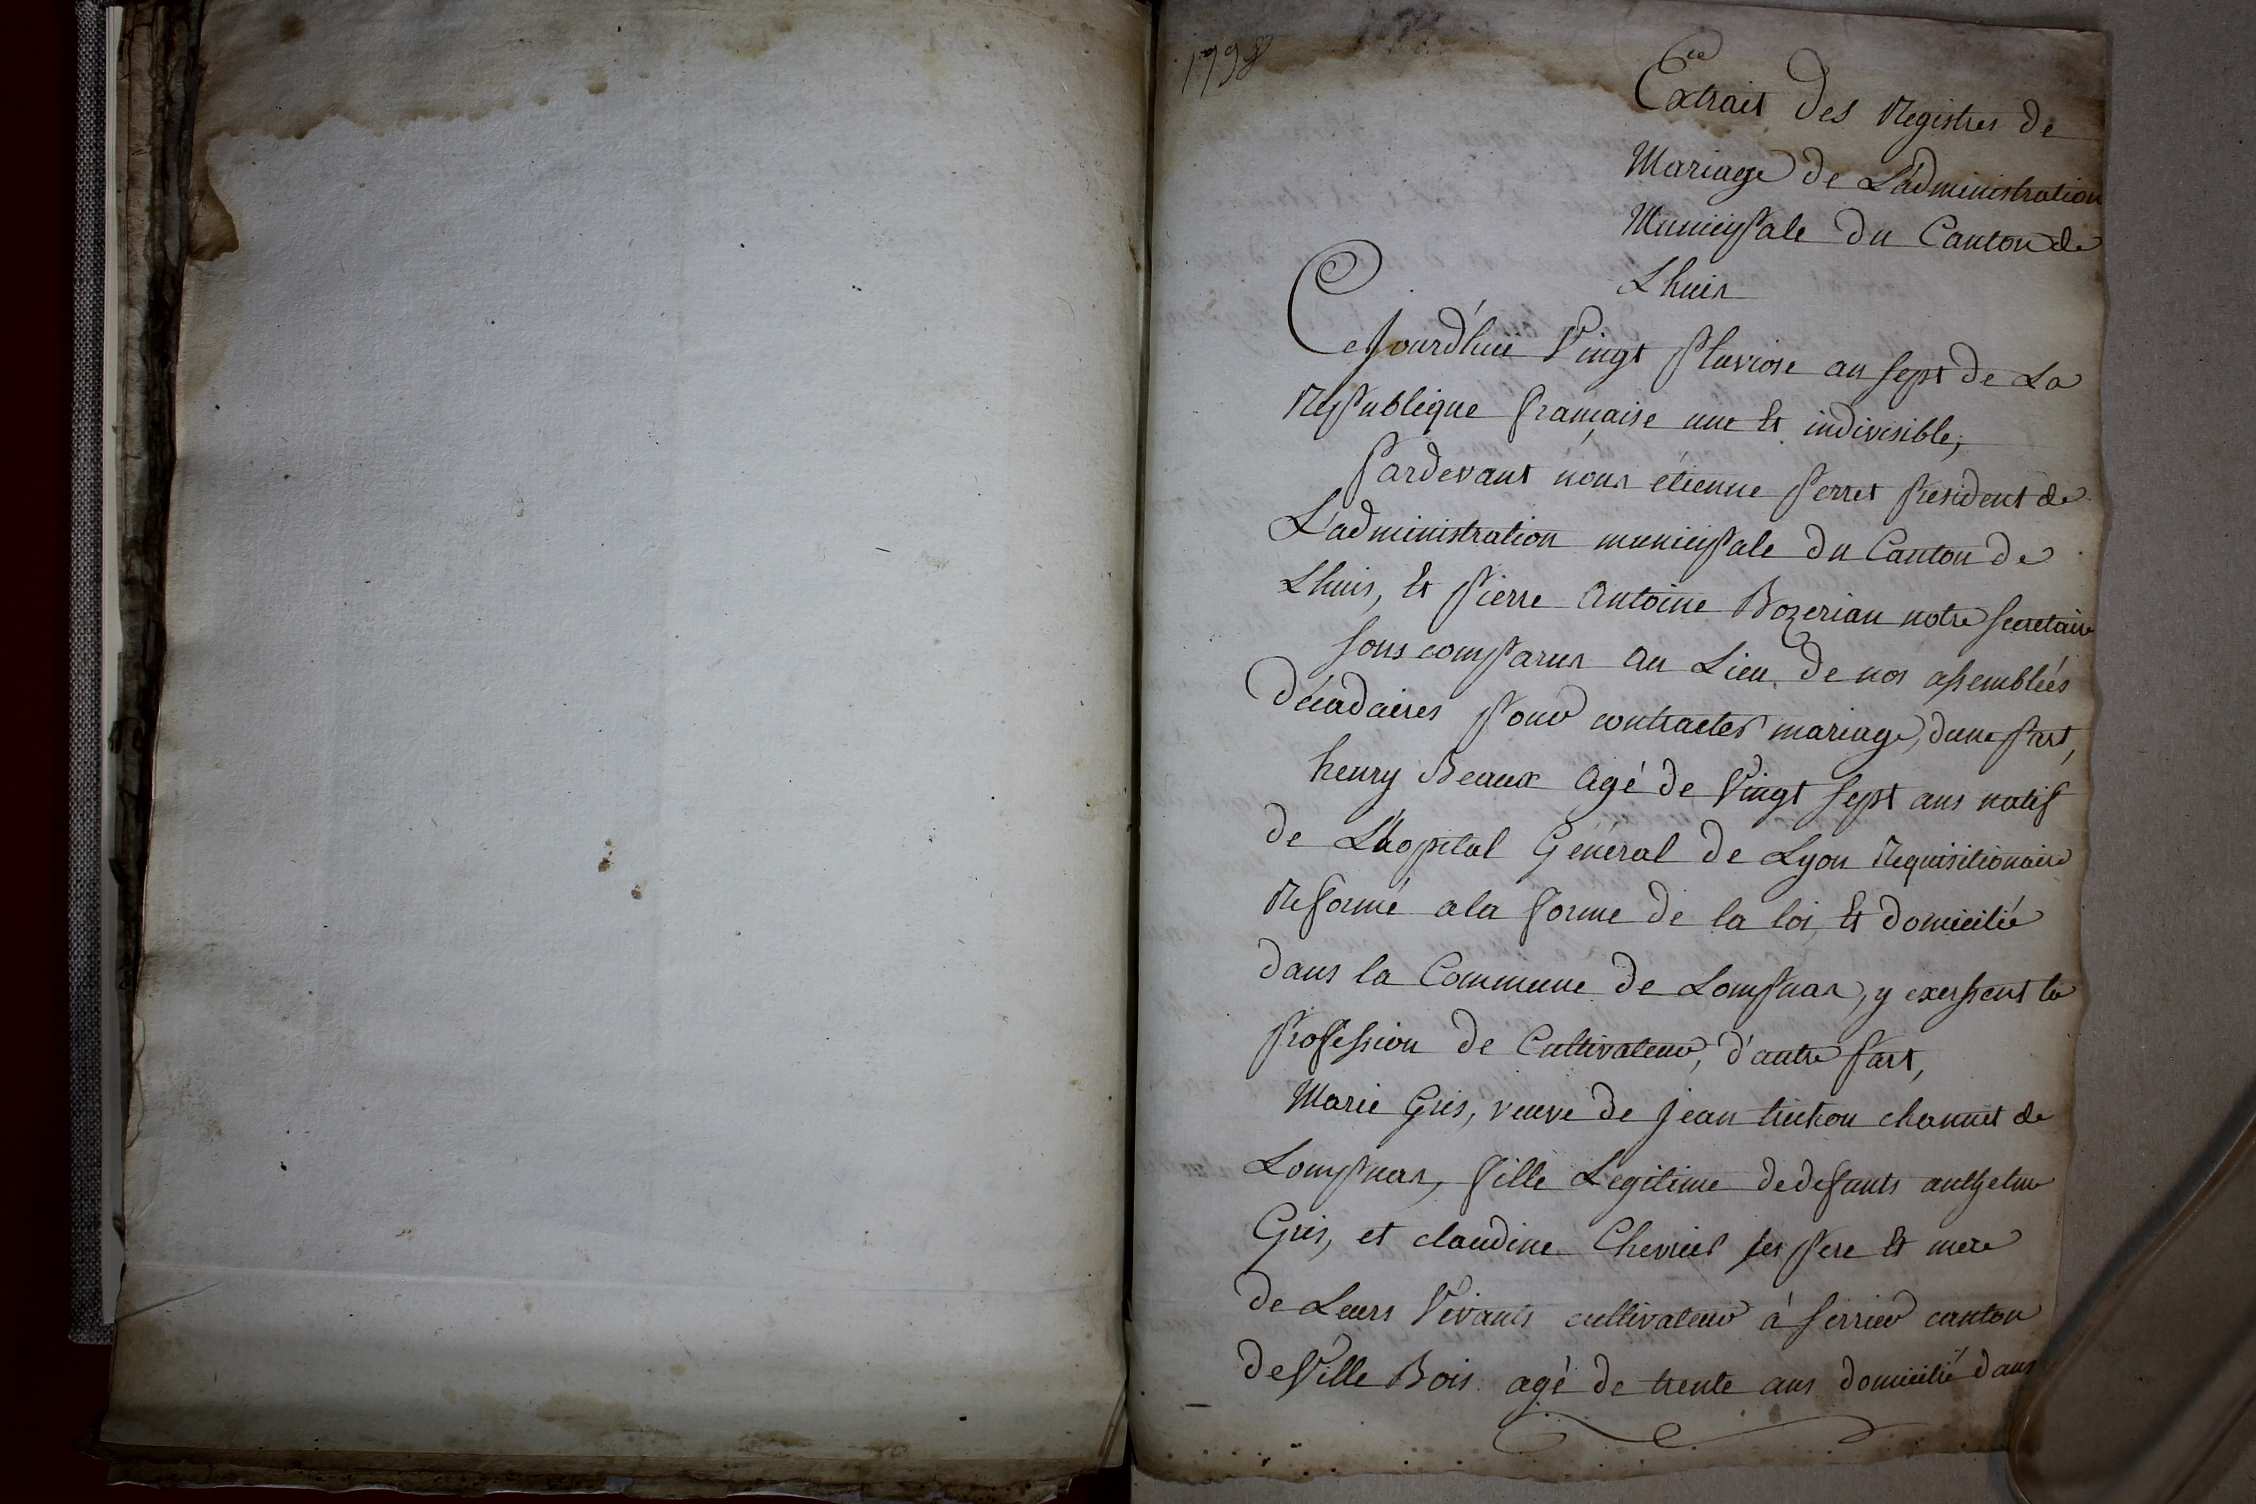 1798
Extrait des Registres de
Mariage de L'administration
Municipale du Canton de
Lhuis
Cejourd'hui Vingt Pluviose an sept de La
Republique française une et indivisible,
Pardevant nous étienne Perret President de
L'administration municipale du Canton de
Lhuis, et Pierre Antoine Bozerian notre secretaire
sons comparus au Lieu de nos assemblées
décadaires pour contracter mariage, dune part,
henry Beaux agé de Vingt sept ans natif
de L'hopital Général de Lyon Requisitionaire
Reformé a la forme de la loi, et domicilié
dans la Commune de Lompnas, y exersent la
profession de Cultivateur, d'autre part,
Marie Gris, veuve de jean trichon channet de
Lompnas, fille Legitime de defunts anthelme
Gris, et claudine Chevrier ses pere et mere
de Leurs Vivants cultivateur à serrier canton
de Ville Bois agé de trente ans domicilié dans